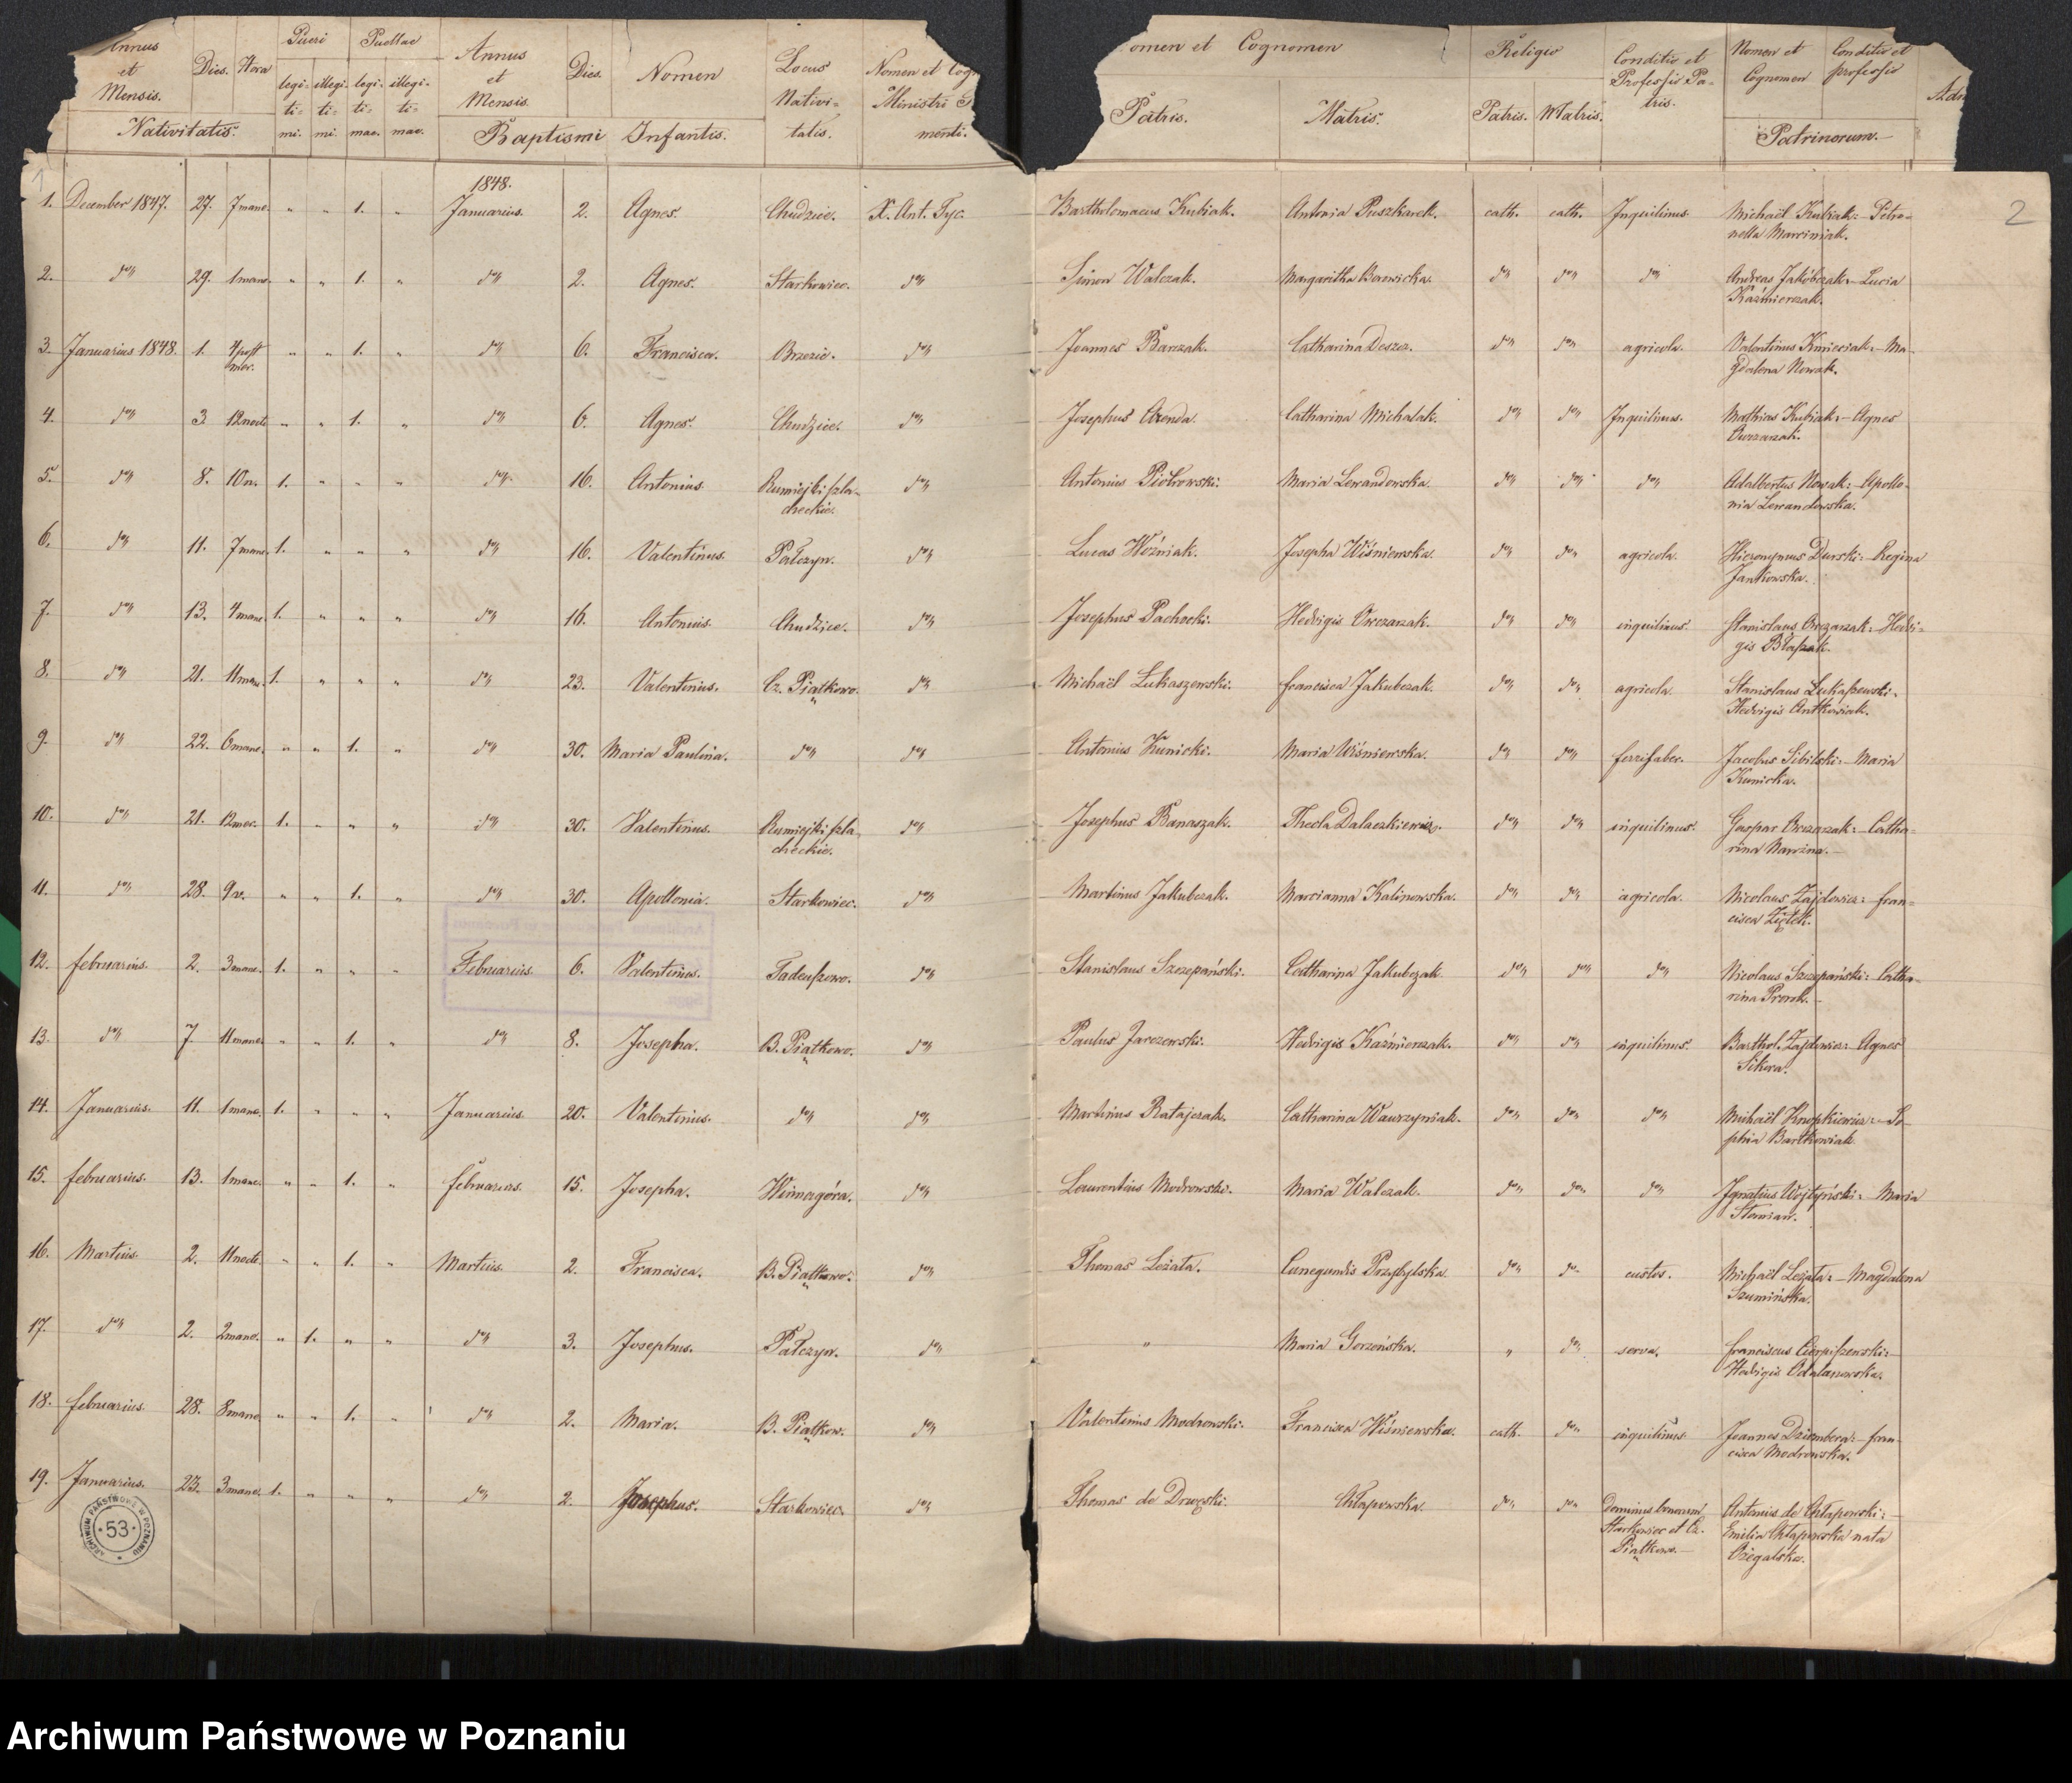 Annus et Mensis. Dies. Hora Pueri Puellae Annus et Mensis. Dies. Nomen Locus Nativi- Nomen et Cogn
legi- illegi- legi- illegi-
ti- ti- ti- ti- Ministri
Nativitatis. mi. mi. mae. mae. Baptismi Infantis. tatis. menti.
omen et Cognomen Religio Conditio et Professio Pa- tris. Nomen et Cognomen Conditio et professio
Patris. Matris. Patris. Matris. Patrinorum.
2
1848.
1. December 1847. 27. 7 mane. " " 1. " Januarius. 2. Agnes. Chudzice. X. Ant. Tyc. Bartholomaeus Kubiak. Antonia Puszkarek. cath. cath. Inquilinus. Michaël Kubiak: – Petro-
nella Marciniak.
2. do 29. 1 mane. " " 1. " do 2. Agnes. Starkowiec. do Simon Walczak. Margaritha Borowicka. do do do Andreas Jakóbczak – Lucia
Kaźmierczak.
3. Januarius 1848. 1. 4 post " " 1. " do 6. Francisca. Brzezie. do Joannes Barczak. Catharina Deszcz. do do agricola. Valentinus Kmieciak. – Ma-
mer. gdalena Nowak.
4. do 3. 12 nocte " " 1. " do 6. Agnes. Chudzice. do Josephus Arenda. Catharina Michalak. do do Inquilinus. Mathias Kubiak: – Agnes
Owczarzak.
5. do 8. 10 n. 1. " " " do 16. Antonius. Rumiejki szla- do Antonius Piotrowski. Maria Lewandowska. do do do Adalbertus Nowak: – Apollo-
checkie. nia Lewandowska.
6. do 11. 7 mane. 1. " " " do 16. Valentinus. Pałczyn. do Lucas Woźniak. Josepha Wiśniewska. do do agricola. Hieronymus Durski: – Regina
Jankowska.
7. do 13. 4 mane. 1. " " " do 16. Antonius. Chudzice. do Josephus Pachocki. Hedvigis Owczarzak. do do inquilinus. Stanislaus Owczarzak: Hedvi-
gis Błaszak.
8. do 21. 11 mane. 1. " " " do 23. Valentinus. Cz. Piątkowo. do Michaël Łukaszewski. Francisca Jakubczak. do do agricola. Stanislaus Łukaszewski.
Hedvigis Antkowiak.
9. do 22. 6 mane. " " 1. " do 30. Maria Paulina. do do Antonius Kunicki. Maria Wiśniewska. do do ferrifaber. Jacobus Sibilski: – Maria
Kunicka.
10. do 21. 12 mer. 1. " " " do 30. Valentinus. Rumiejki szla- do Josephus Banaszak. Thecla Dalaszkiewicz. do do inquilinus. Gaspar Owczarzak: – Catha-
checkie. rina
11. do 28. 9 v. " " 1. " do 30. Apollonia. Starkowiec. do Martinus Jakubczak. Marcianna Kalinowska. do do agricola. Nicolaus Zajdowicz: Fran-
cisca Ziętek.
12. februarius. 2. 3 mane. 1. " " " Februarius. 6. Valentinus. Tadeuszowo. do Stanislaus Szczepański. Catharina Jakubczak do do do Nicolaus Szczepański: Catha-
rina
13. do 7 11 mane. " " 1. " do 8. Josepha. B. Piątkowo. do Paulus Jarczewski. Hedvigis Kaźmierczak. do do inquilinus. Barthol. Zajdowicz: Agnes
Sikora.
14. Januarius. 11. 1 mane. 1. " " " Januarius. 20. Valentinus. do do Martinus Ratajczak. Catharina Wawrzyniak. do do do Michaël Knopkiewicz: – So-
phia Bartkowiak
15. februarius. 13. 1 mane. " " 1. " februarius. 15. Josepha. Winnagóra. do Laurentius Modrowski. Maria Walczak. do do do Ignatius Wojtyński: Maria
16. Martius. 2. 11 nocte. " " 1. " Martius. 2. Francisca. B. Piątkowo. do Thomas Leżała. Cunegundis Przybylska do do custos. Michaël Leżała: – Magdalena
Szumińska.
17. do 2. 2 mane. " 1. " " do 3. Josephus. Pałczyn. do " Maria Gorzeńska. " do serva. Franciscus Cierpiszewski: –
Hedvigis Odolanowska.
18. februarius. 28. 8 mane. " " 1. " do 2. Maria. B. Piątkow. do Valentinus Modrowski. Francisca Wiśniewska. cath. do inquilinus. Joannes Dziembora: – Fran-
cisca Modrowska.
19. Januarius. 23. 3 mane. 1. " " " do 2. Josephus. Starkowiec. do Thomas de Drwęski. Chłapowska. do do dominus bonorum Antonius de Chłapowski: –
Starkowiec et Cz. Emilia Chłapowska nata
Piątkowo. – Ożegalska.
ARCHIWUM PAŃSTWOWE W POZNANIU
53
Archiwum Państwowe w Poznaniu